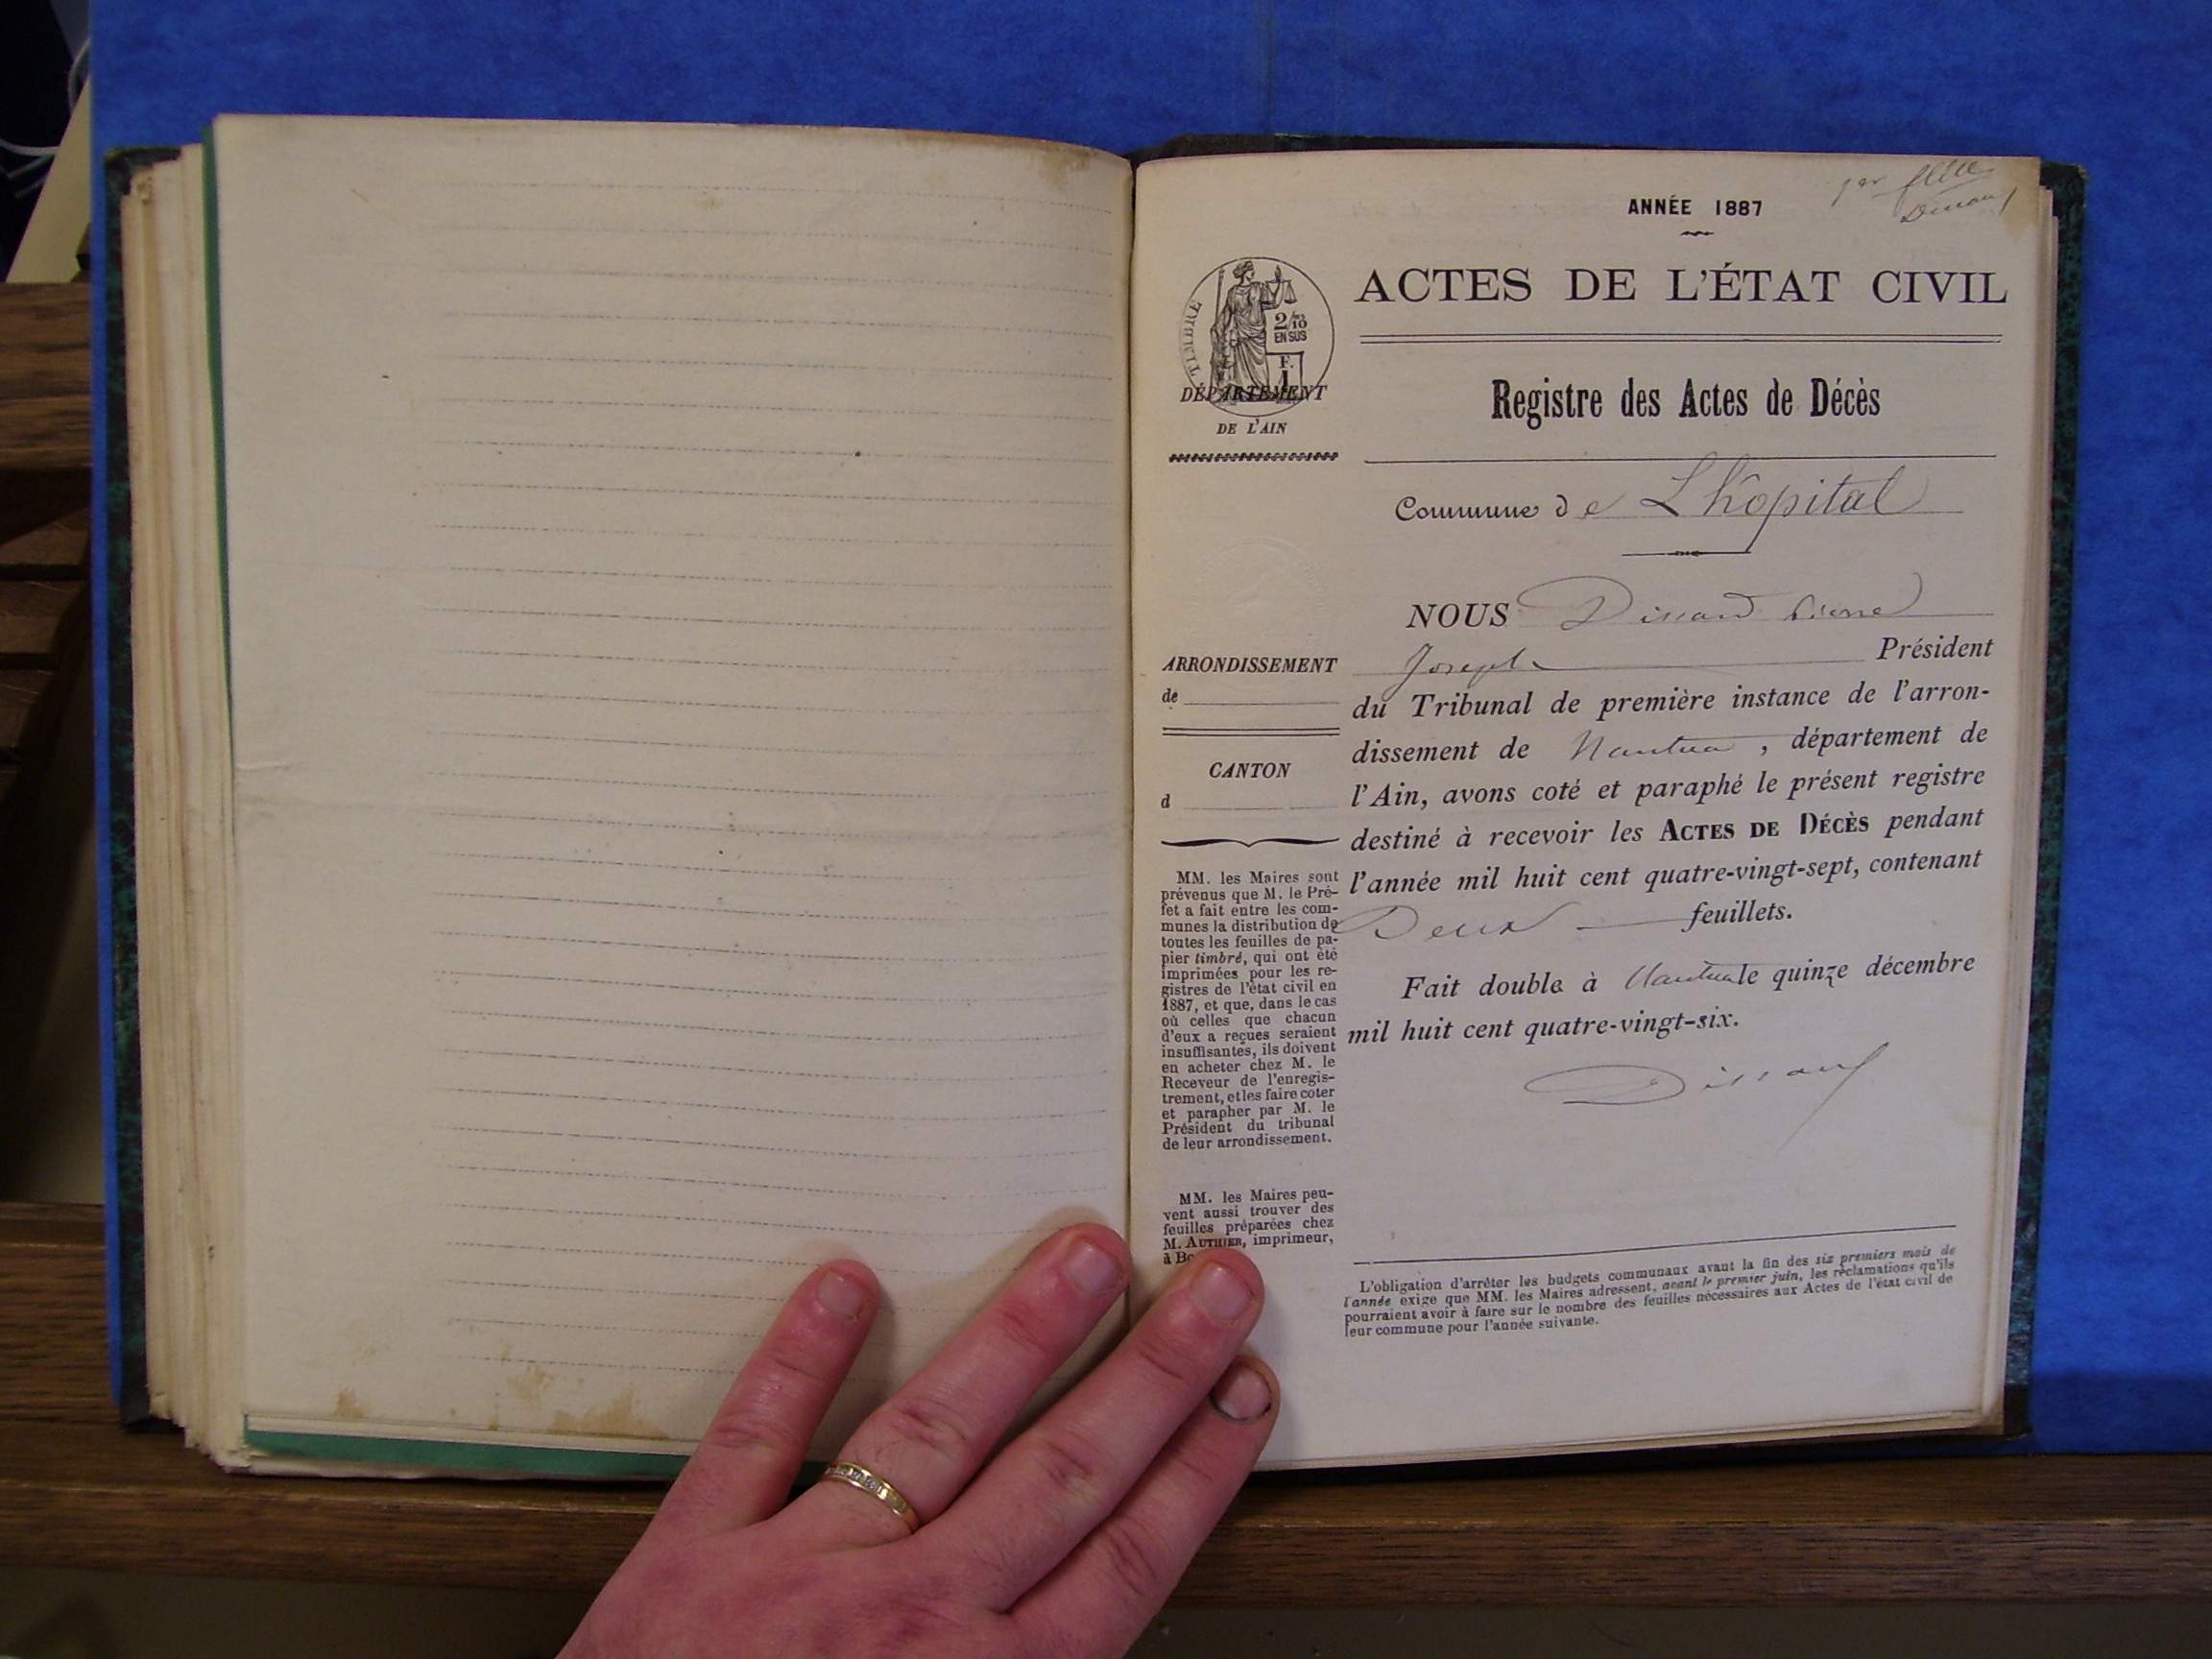 1er flllet
Dissard
ANNÉE 1887
ACTES DE L'ÉTAT CIVIL
TIMBRE
2/10
EN SUS
F.
1
DÉPARTEMENT
DE L'AIN
Registre des Actes de Décès
Commune de Lhôpital
NOUS Dissard Pierre
Joseph Président
du Tribunal de première instance de l'arron-
dissement de Nantua, département de
l'Ain, avons coté et paraphé le présent registre
destiné à recevoir les ACTES DE DÉCÈS pendant
l'année mil huit cent quatre-vingt-sept, contenant
Deux feuillets.
Fait double à Nantua le quinze décembre
mil huit cent quatre-vingt-six.
Dissard
ARRONDISSEMENT
de
CANTON
d
MM. les Maires sont
prévenus que M. le Pré-
fet a fait entre les com-
munes la distribution de
toutes les feuilles de pa-
pier timbré, qui ont été
imprimées pour les re-
gistres de l'état civil en
1887, et que, dans le cas
où celles que chacun
d'eux a reçues seraient
insuffisantes, ils doivent
en acheter chez M. le
Receveur de l'enregis-
trement, et les faire coter
et parapher par M. le
Président du tribunal
de leur arrondissement.
MM. les Maires peu-
vent aussi trouver des
feuilles préparées chez
M. AUTHIER, imprimeur,
à Bo
L'obligation d'arrêter les budgets communaux avant la fin des six premiers mois de
l'année exige que MM. les Maires adressent, avant le premier juin, les réclamations qu'ils
pourraient avoir à faire sur le nombre des feuilles nécessaires aux Actes de l'état civil de
leur commune pour l'année suivante.